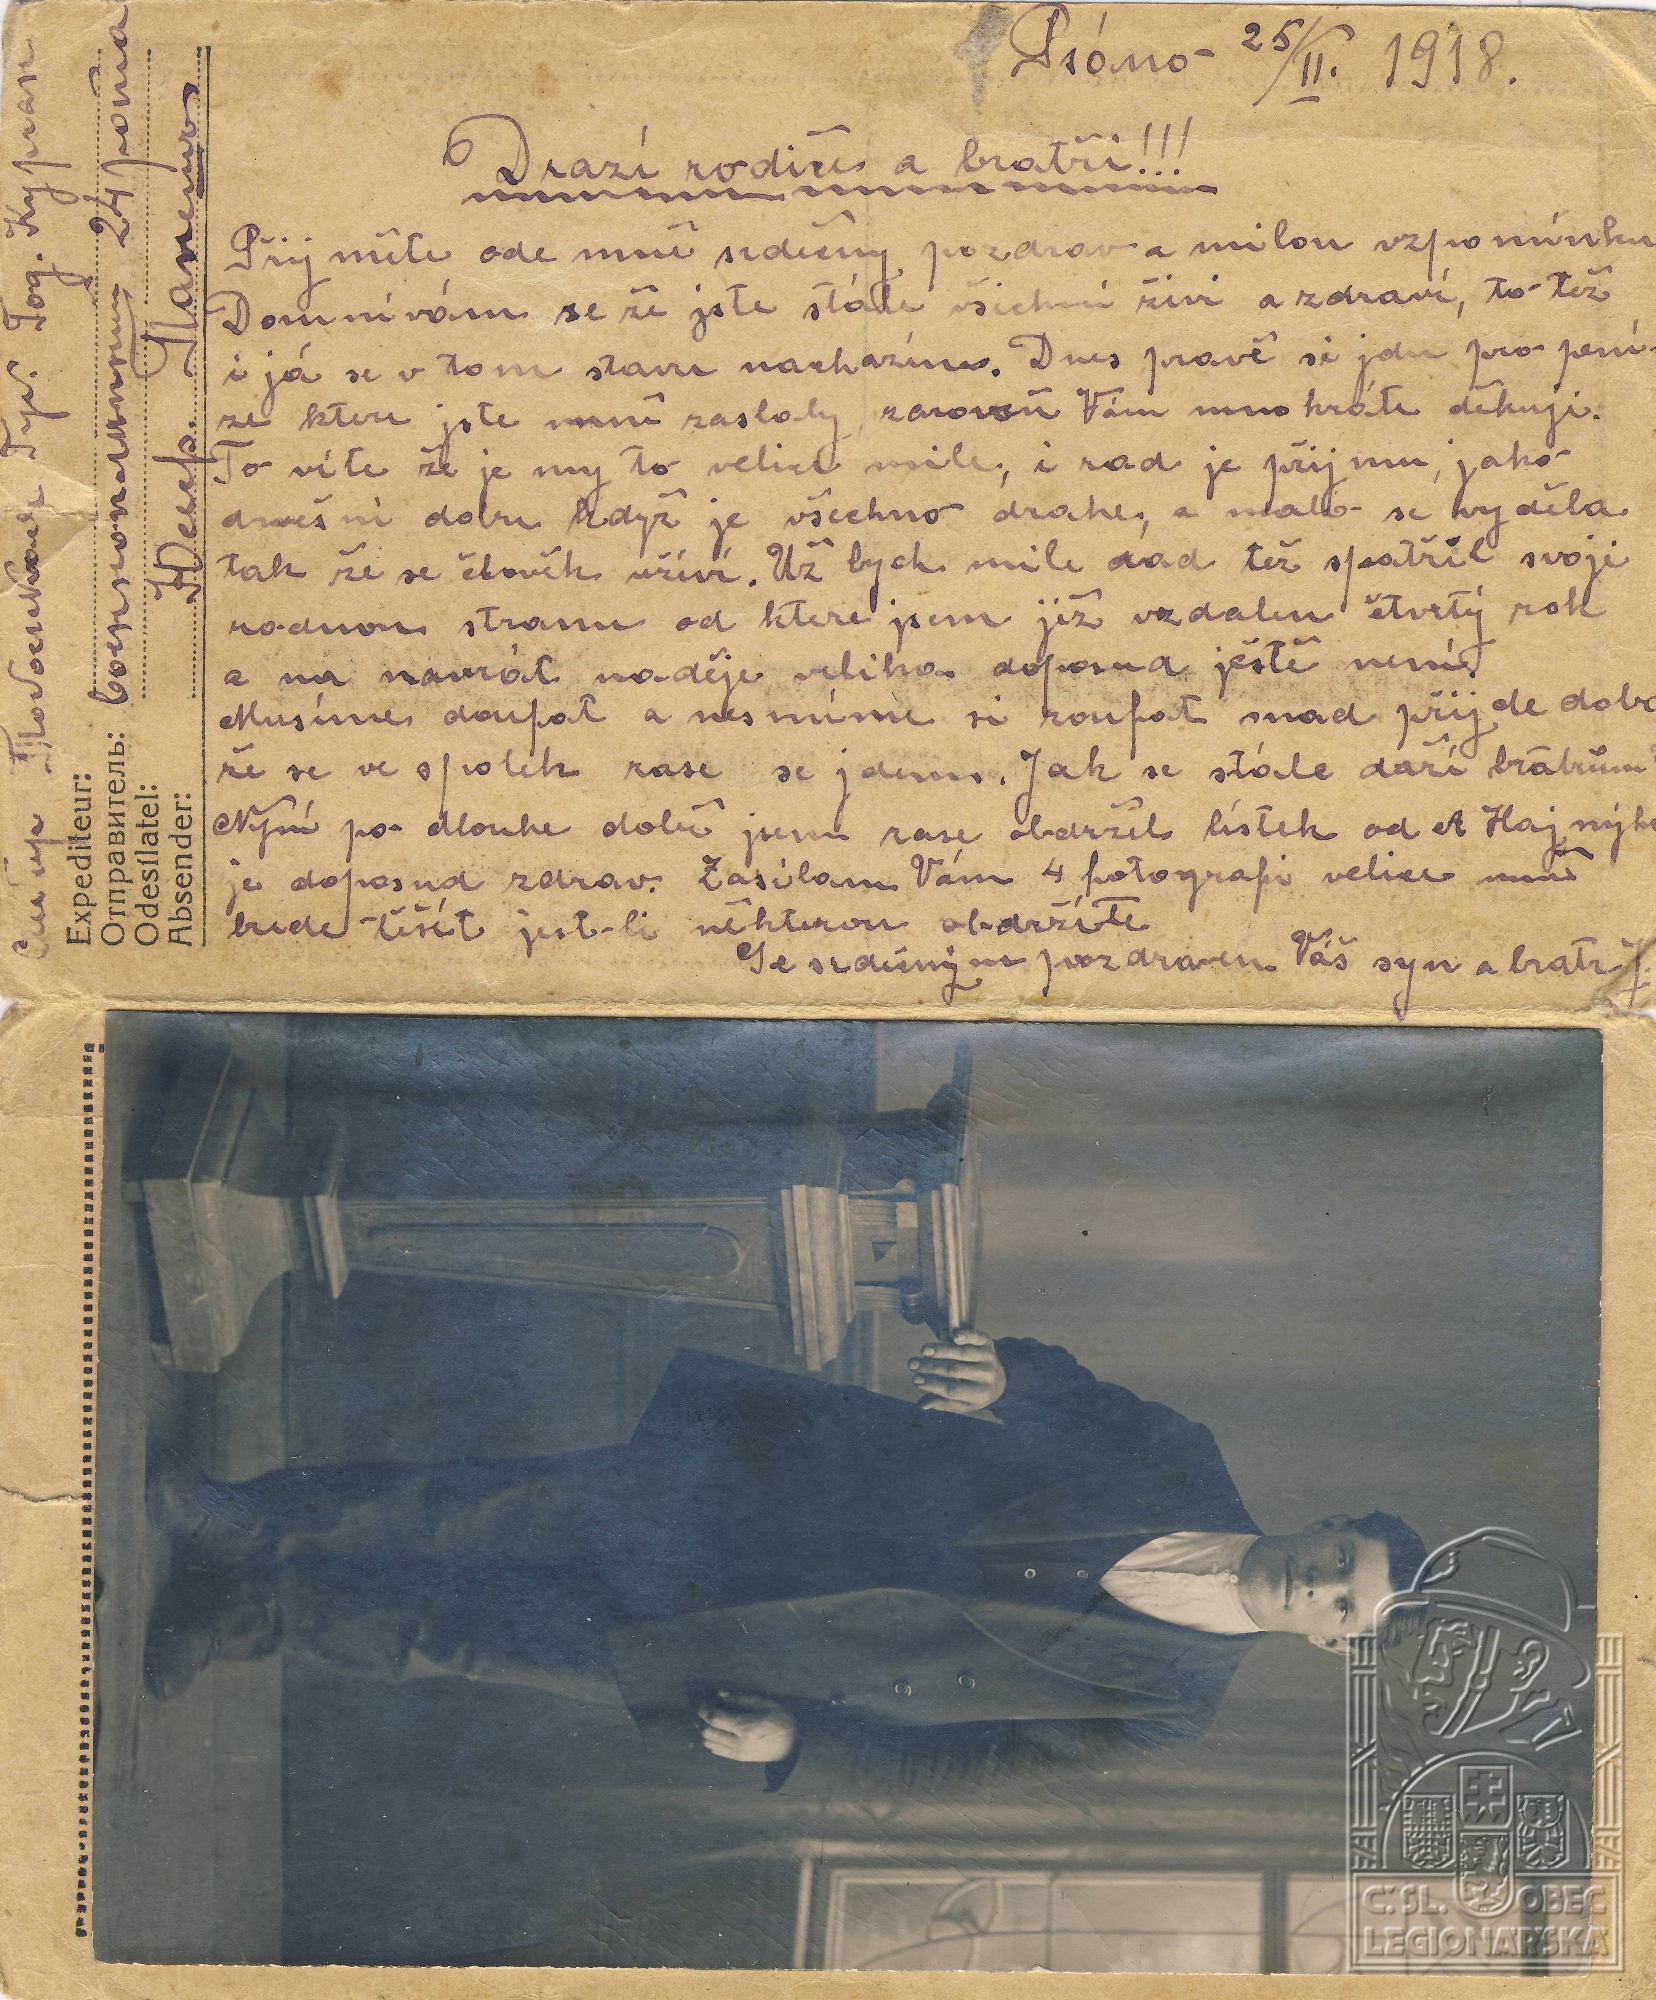 Psáno 25/II. 1918.
Drazí rodiče a bratři!!!
Přijměte ode mně srdečný pozdrav a milou vzpomínku
Domnívám se že jste stále všichni živi a zdraví, to též
i já se v tom stavu nacházím. Dnes pravě si jdu pro pení-
ze ktere jste mně zaslaly, zaroveň Vám mnohráte děkuji.
To víte že je my to velice mile, i rad je přijmu, jako
dnešní dobu když je všechno drahe, a malo se vyděla
tak že se človék uživí. Už bych mile rád též spatřil svoji
rodnou stranu od ktere jsem již vzdalen čtvrtý rok
a na navrát naděje velika doposud ještě není.
Musíme doufat a nesmíme si zoufat snad přijde doba
že se ve spolek zase se jdem. Jak se stále daří brátrům
Nyní po dlouhe době jsem zase obdržel lístek od A Hajných
je doposud zdrav. Zasílam Vám 4 fotografi velice mně
bude těšít jest-li některou obdržíte
Se srdečným pozdravem Váš syn a bratr J.
Expediteur:
Отправитель: военнопленный 24 рота
Odesílatel:
Absender:
C.SL. OBEC
LEGIONÁŘSKÁ